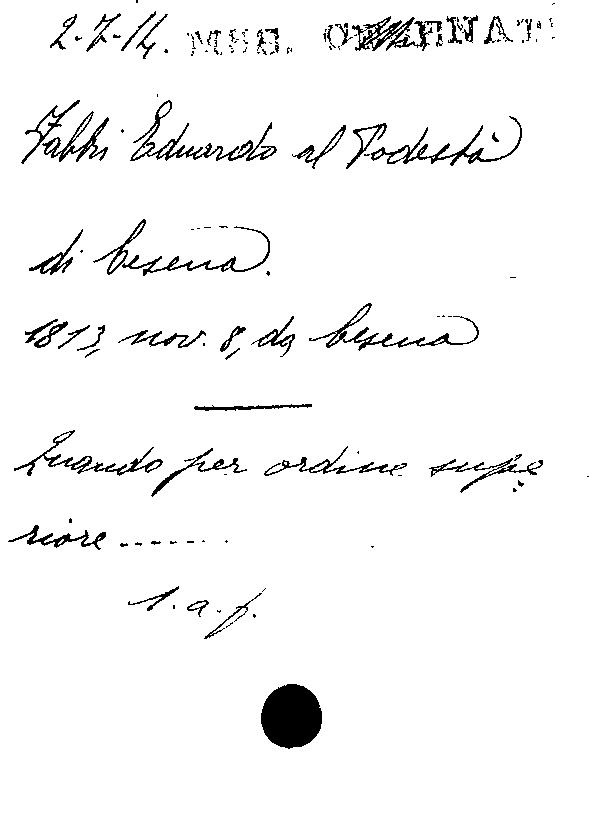 2-7-14. MSS. CESENATI
Fabbri Eduardo al Podestà
di Cesena.
1813, nov. 8, da Cesena
Quando per ordine supe
riore .......
1. a. f.